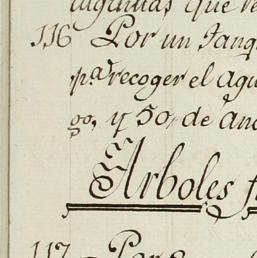 que
116 Por un Tanq
pa recoger el agu
go, y 50, de anc
Arboles f
117